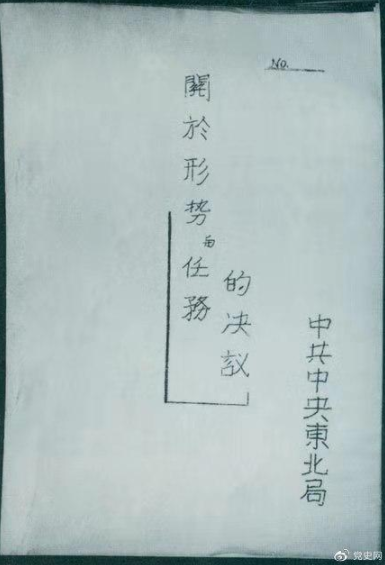 No.
關於形势任務
的决议
中共中央東北局
党史网